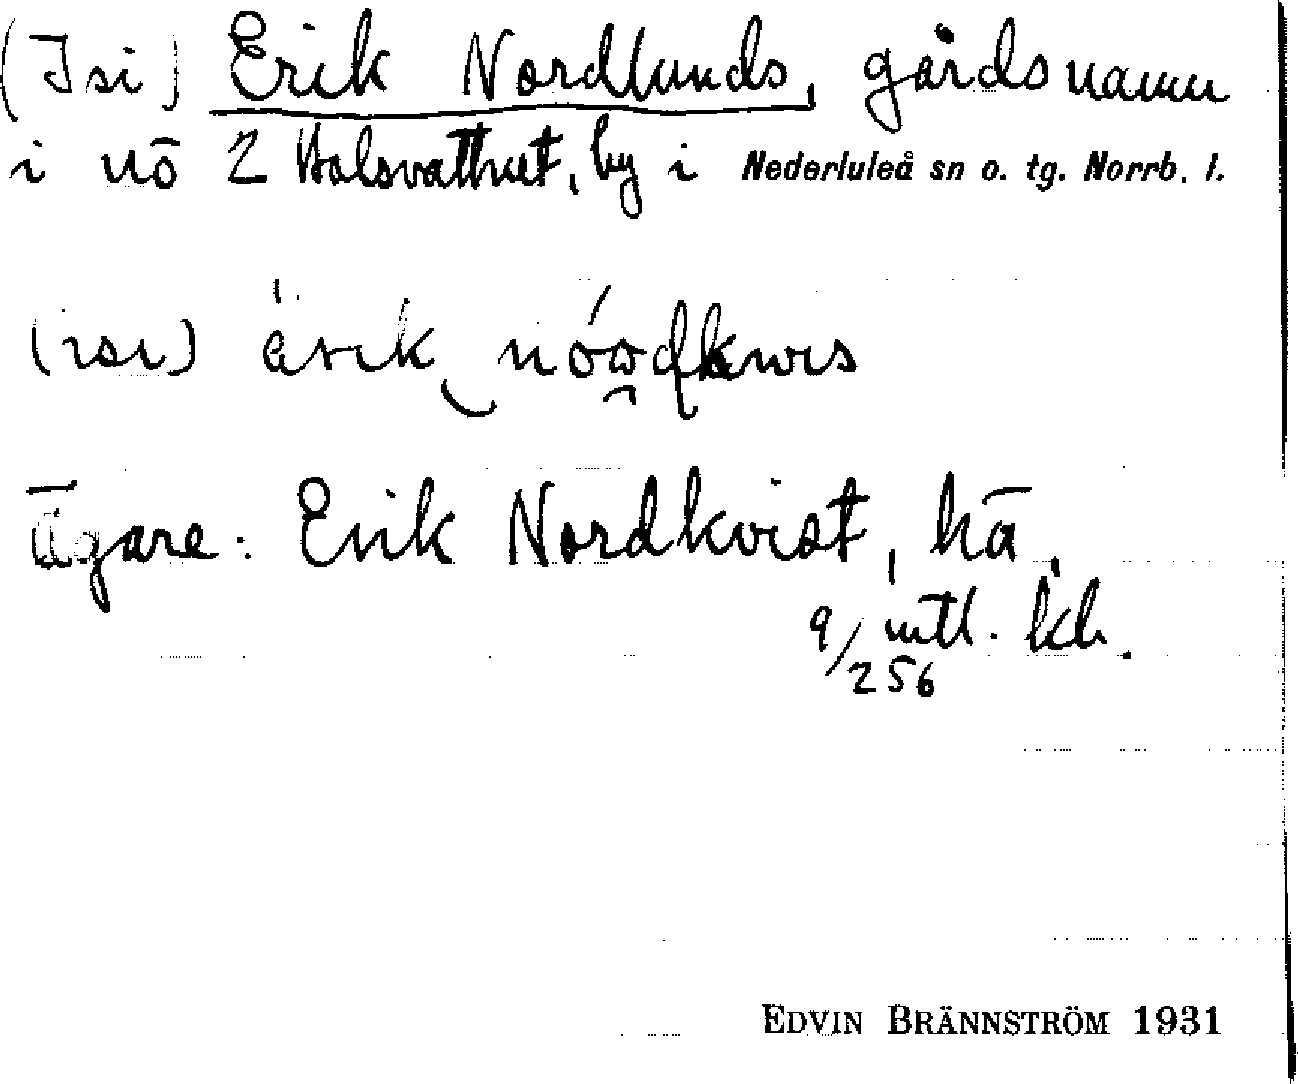 (Isi) Erik Nordlunds, gårdsnamn
i nö 2 Holsvattnet, by i Nederluleå sn o. tg. Norrb. l.
(isi)
Ägare: Erik Nordkvist, hä.
9/256 mtl. kh.
EDVIN BRÄNNSTRÖM 1931